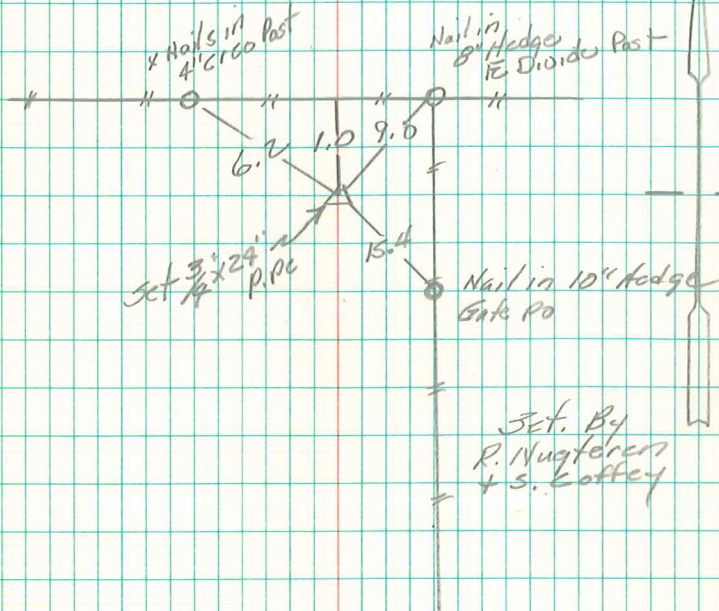 x Nails in
4" Creo Post
Nail in
8" Hedge
E Divide Post
6.2
1.0
9.8
15.4
Set 3/4" x 24"
pipe
Nail in 10" Hedge
Gate Po
Set. By
R. Nugteren
+ S. Coffey